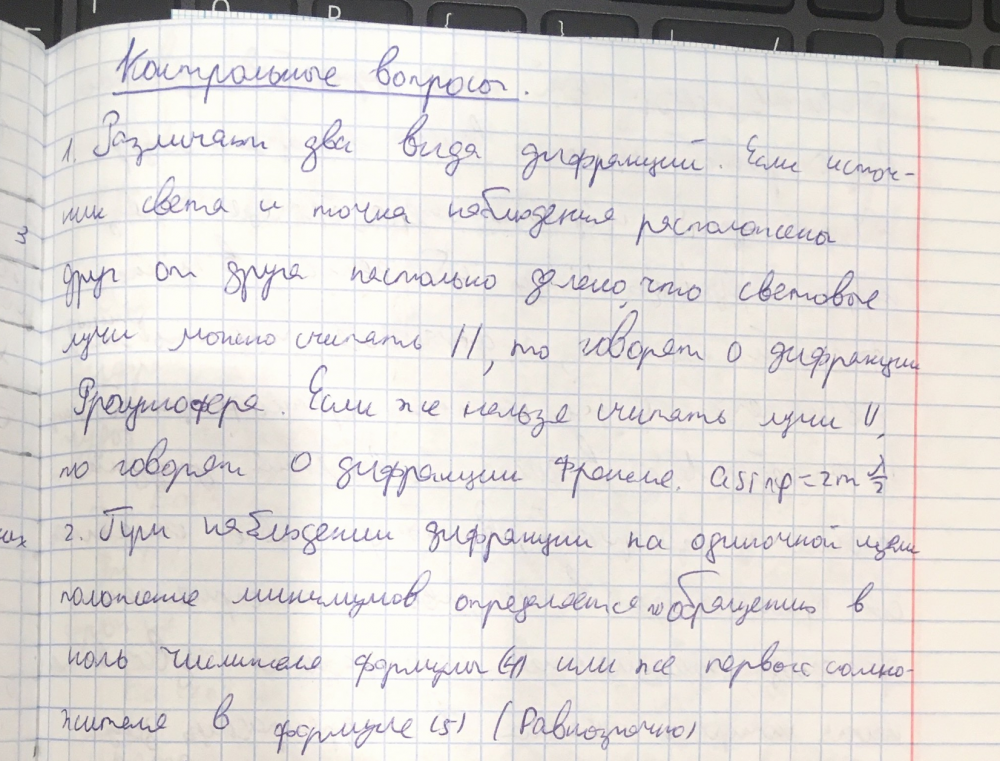 Контрольные вопросы.
1. Различают два вида дифракций. Если источ-
ник света и точка наблюдения расположены
друг от друга настолько далеко, что световые
лучи можно считать ||, то говорят о дифракции
Фраунгофера. Если же нельзя считать лучи ||,
то говорят о дифракции Френеля. a sinφ = 2m λ/2
2. При наблюдении дифракции на одиночной щели
положение минимумов определяется по обращению в
ноль числителя формулы (4) или же первого сомно-
жителя в формуле (5) (Равнозначно)
3
их